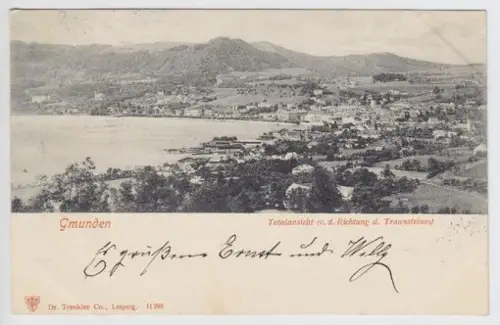 Gmunden
Totalansicht v. d. Richtung d. Traunsteines
Es grüßen Ernst und Willy
Dr. Trenkler Co., Leipzig. 11290